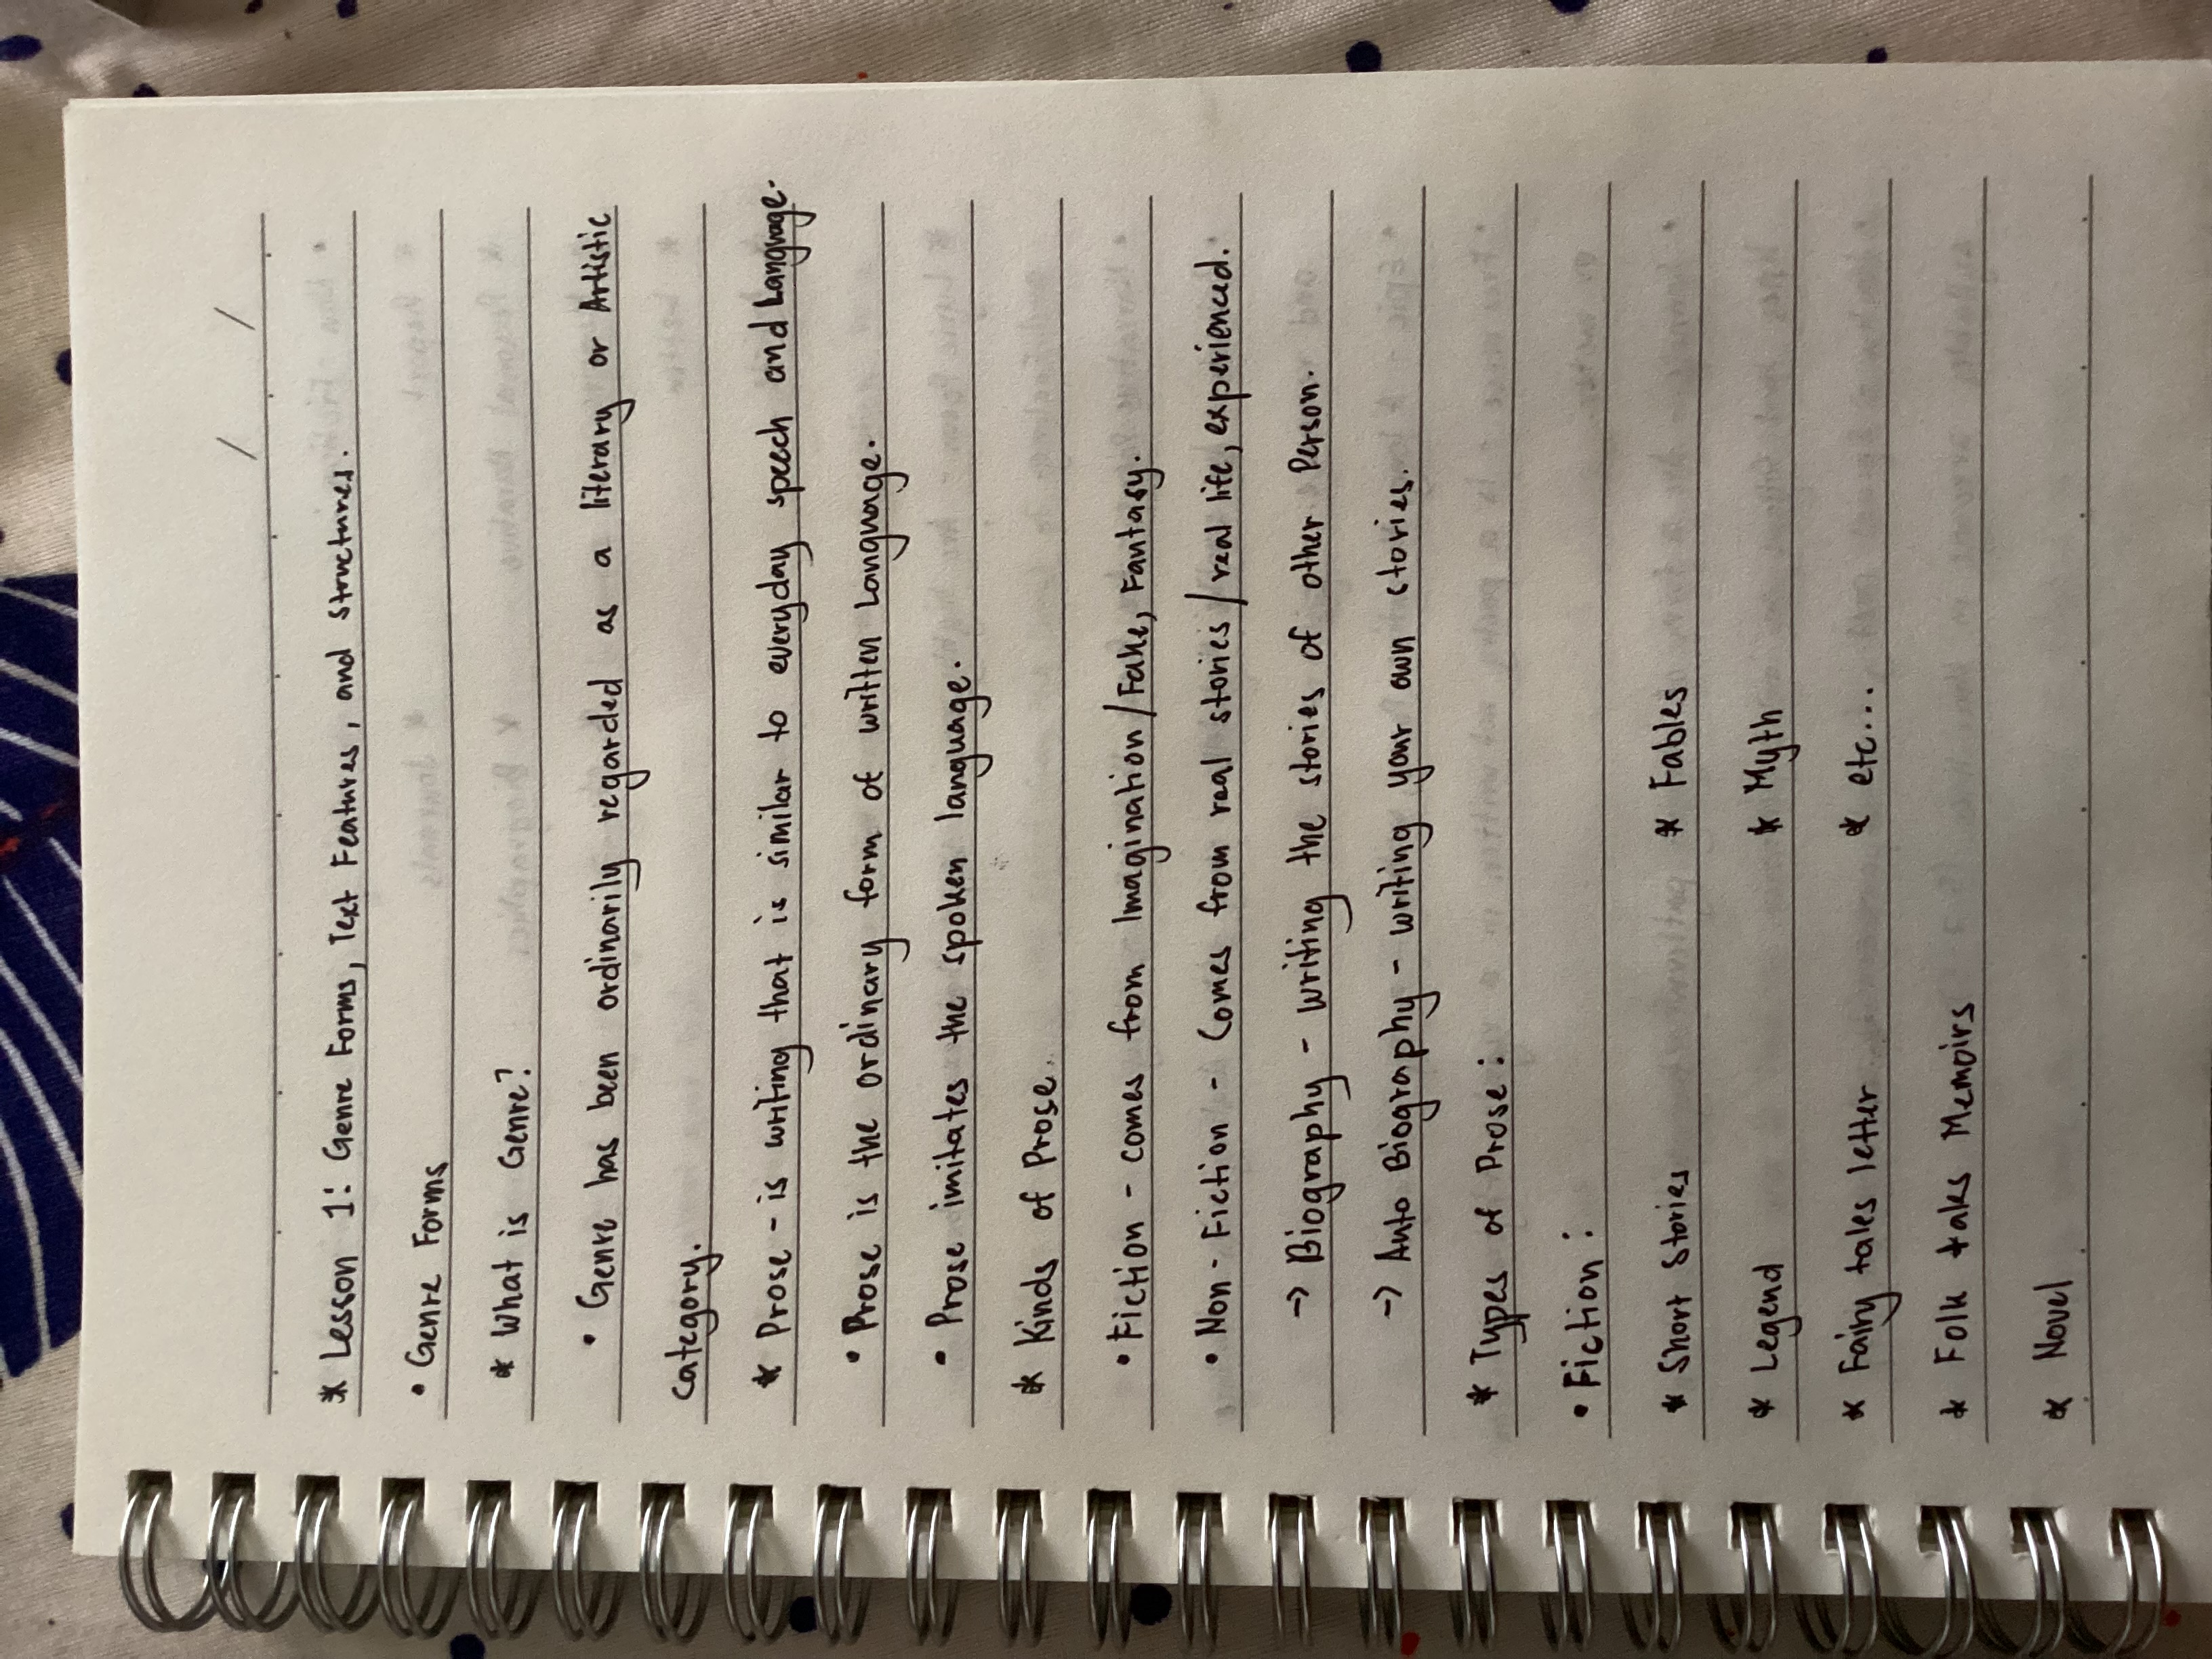 / /
* Lesson 1: Genre Forms, Text Features, and Structures.
• Genre Forms
* What is Genre?
• Genre has been ordinarily regarded as a literary or Artistic
category.
* Prose - is writing that is similar to everyday speech and Language.
• Prose is the ordinary form of written Language.
• Prose imitates the spoken language.
* Kinds of Prose.
• Fiction - comes from Imagination/Fake, Fantasy.
• Non-Fiction - Comes from real stories/real life, experienced.
→ Biography - writing the stories of other Person.
→ Auto Biography - writing your own stories.
* Types of Prose:
• Fiction:
* Short Stories * Fables
* Legend * Myth
* Fairy tales letter * etc...
* Folk tales Memoirs
* Novel